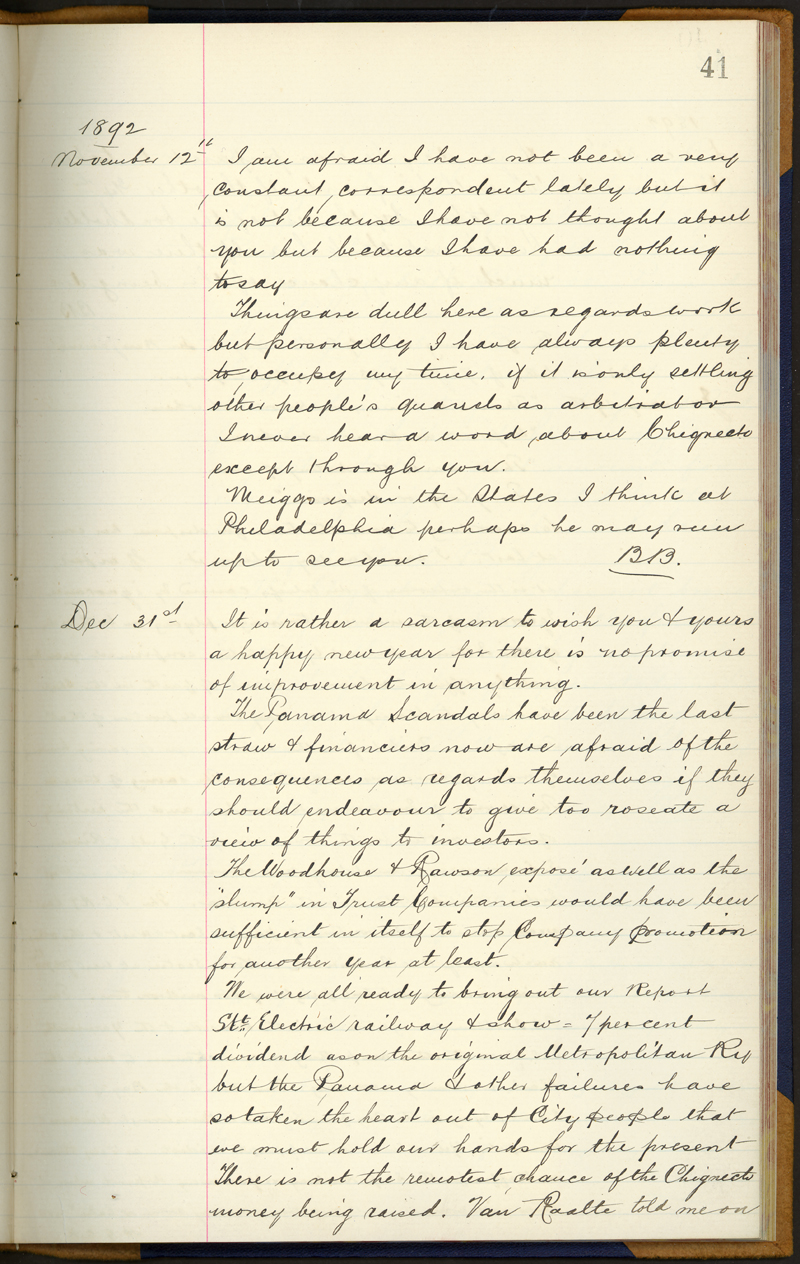 41
1892
November 12th I am afraid I have not been a very
constant correspondent lately but it
is not because I have not thought about
you but because I have had nothing
to say
Things are dull here as regards work
but personally I have always plenty
to occupy my time, if it is only settling
other people's quarrels as arbitrator
I never hear a word about Chignecto
except through you.
Meiggs is in the States I think at
Philadelphia perhaps he may run
up to see you. BB.
Dec 31st It is rather a sarcasm to wish you & yours
a happy new year for there is no promise
of improvement in anything.
The Panama Scandals have been the last
straw & financiers now are afraid of the
consequences as regards themselves if they
should endeavour to give too roseate a
view of things to investors.
The Woodhouse & Rawson exposé as well as the
"slump" in Trust Companies would have been
sufficient in itself to stop Company promotion
for another year at least.
We were all ready to bring out our Report
Electric railway & show = 7 per cent
dividend as on the original Metropolitan Ry
but the Panama & other failures have
so taken the heart out of City people that
we must hold our hands for the present
There is not the remotest chance of the Chignecto
money being raised. Van Raalte told me on